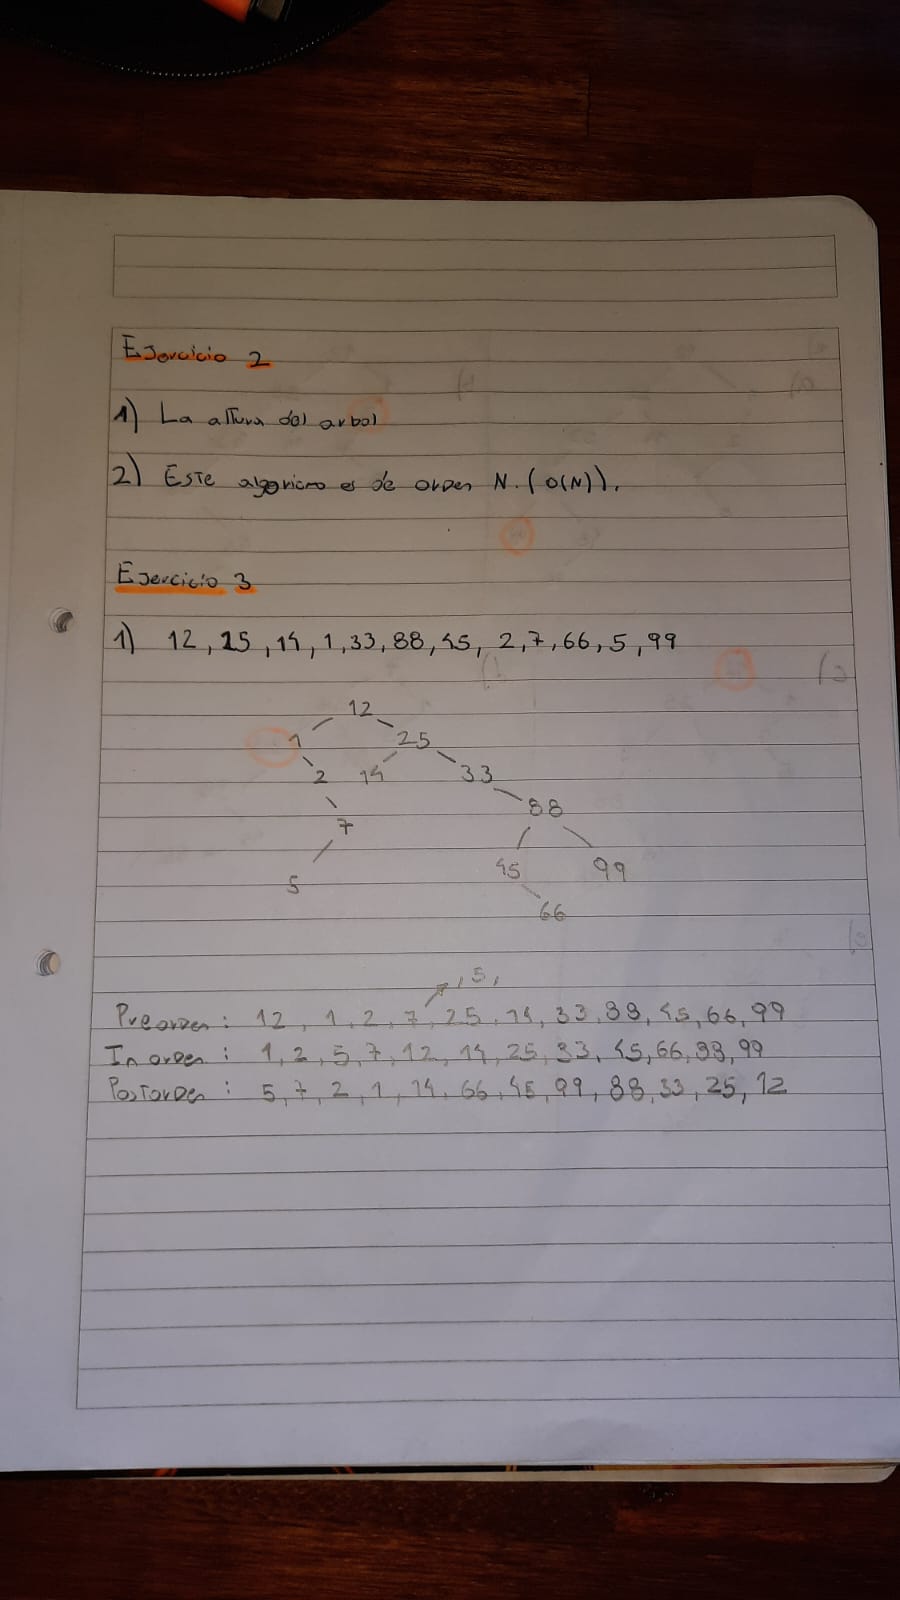 Ejercicio 2
1) La altura del arbol
2) Este algoricmo es de orden N. (O(N)).
Ejercicio 3
1) 12, 25, 14, 1, 33, 88, 45, 2, 7, 66, 5, 99
12
1 25
2 14 33
7 88
5 45 99
66
, 5,
Preorden: 12, 1, 2, 7, 25, 14, 33, 88, 45, 66, 99
In orden: 1, 2, 5, 7, 12, 14, 25, 33, 45, 66, 88, 99
Postorden: 5, 7, 2, 1, 14, 66, 45, 99, 88, 33, 25, 12